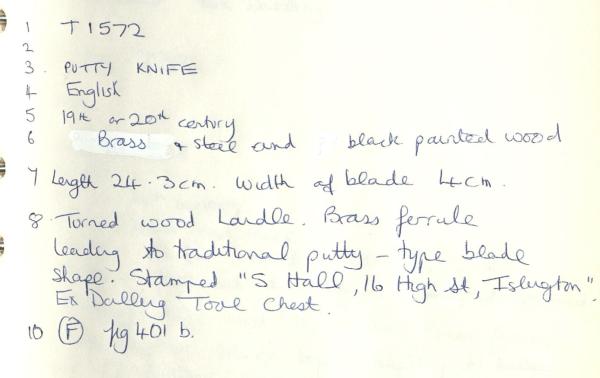 1 T1572
2
3. PUTTY KNIFE
4 English
5 19th or 20th century
6 Brass + steel and black painted wood
7 Length 24.3cm. Width of blade 4cm.
8 Turned wood handle. Brass ferrule
leading to traditional putty - type blade
shape. Stamped "S Hall, 16 High St, Islington".
Ex Dalling Tool Chest.
10 (F) pg 401 b.